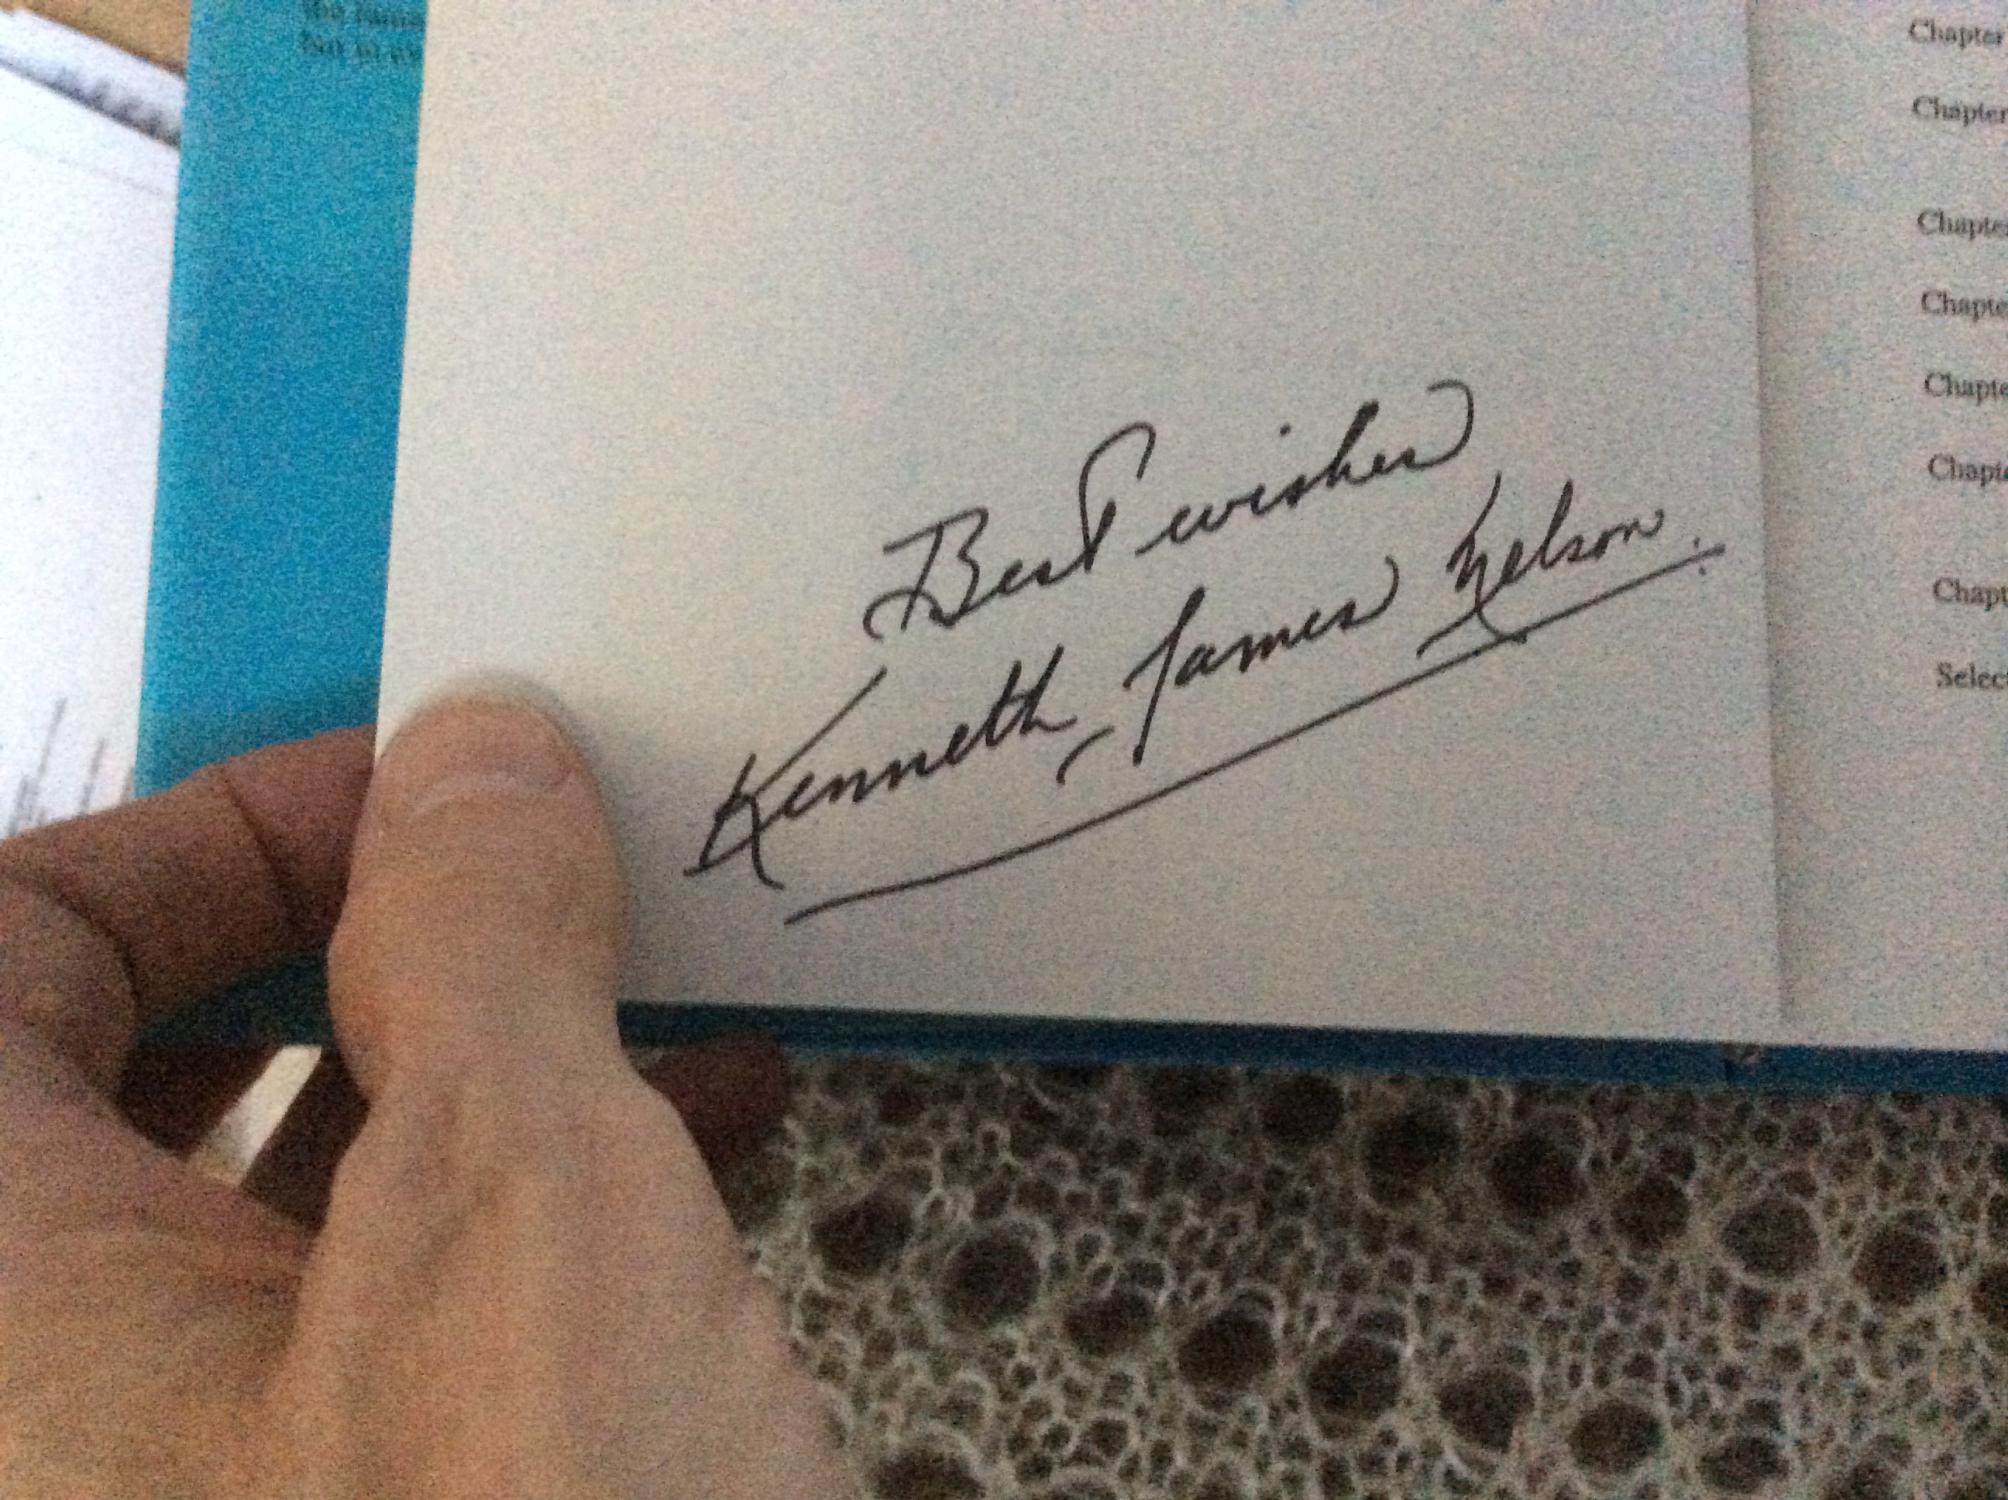 Best wishes
Kenneth James Nelson.
Chapter
Chapter
Chapter
Chapter
Chapter
Chapter
Chapter
Selec